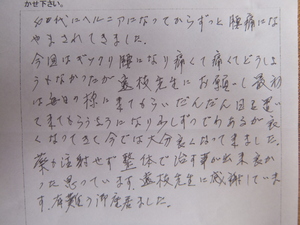 かせ下さい。
40代にヘルニアになってからずっと腰痛になやまされてきました。
今回はギックリ腰になり痛くて痛くてどうしようもなかったが 先生にお願いし最初
は毎日の様に来てもらいだんだん日を置い
て来てもらうようになり少しずつではあるが良
くなってきて今では大分良くなって来ました。
薬も注射せず整体で治す事が出来良か
った思っています。 先生に感謝していま
す、有難う御座居ました。